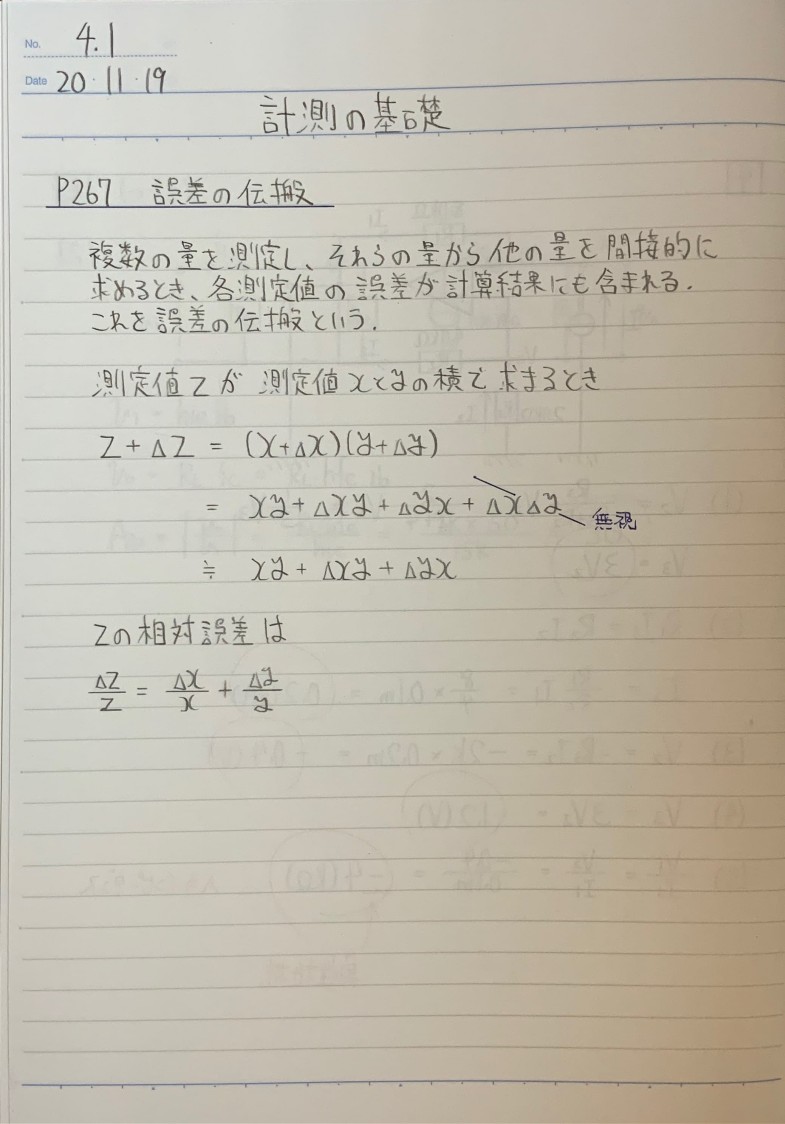 No. 4.1
Date 20・11・19
計測の基礎
P267 誤差の伝搬
複数の量を測定し、それらの量から他の量を間接的に
求めるとき、各測定値の誤差が計算結果にも含まれる.
これを誤差の伝搬という.
測定値 Z が 測定値 x と y の積で 求まるとき
Z + ΔZ = (x+Δx)(y+Δy)
= xy + Δxy + Δyx + ΔxΔy 無視
≒ xy + Δxy + Δyx
Zの相対誤差は
ΔZ/Z = Δx/x + Δy/y